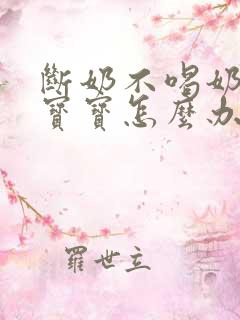 斷奶不喝奶
寶寶怎麼办
羅世立